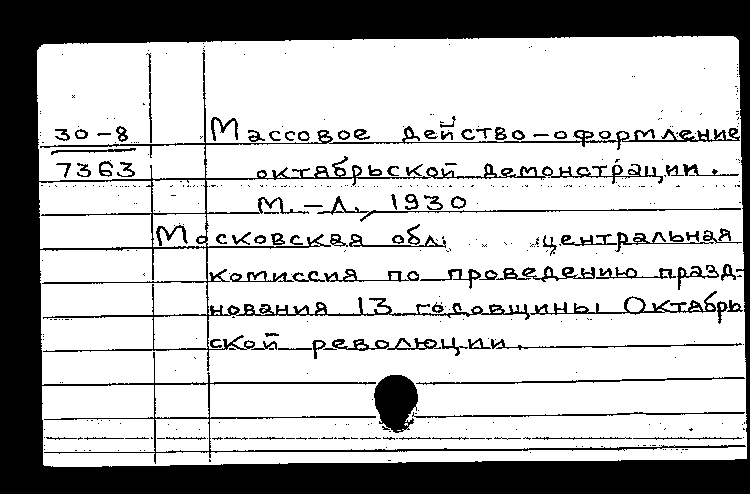 30-8 Массовое действо-оформление
7363 октябрьской демонстрации.
М.-Л., 1930
Московская обл. центральная
комиссия по проведению празд-
нования 13 годовщины Октябрь
ской революции.